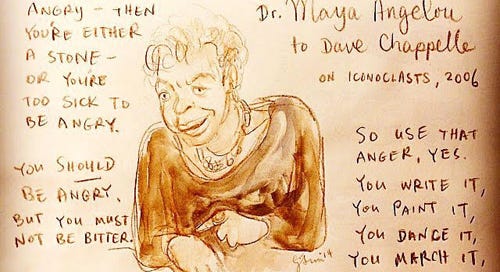 ANGRY - THEN
YOU'RE EITHER
A STONE -
OR YOU'RE
TOO SICK TO
BE ANGRY.
YOU SHOULD
BE ANGRY.
BUT YOU MUST
NOT BE BITTER.
Dr. Maya Angelou
to Dave Chappelle
ON ICONOCLASTS, 2006
SO USE THAT
ANGER, YES.
YOU WRITE IT,
YOU PAINT IT,
YOU DANCE IT,
YOU MARCH IT,